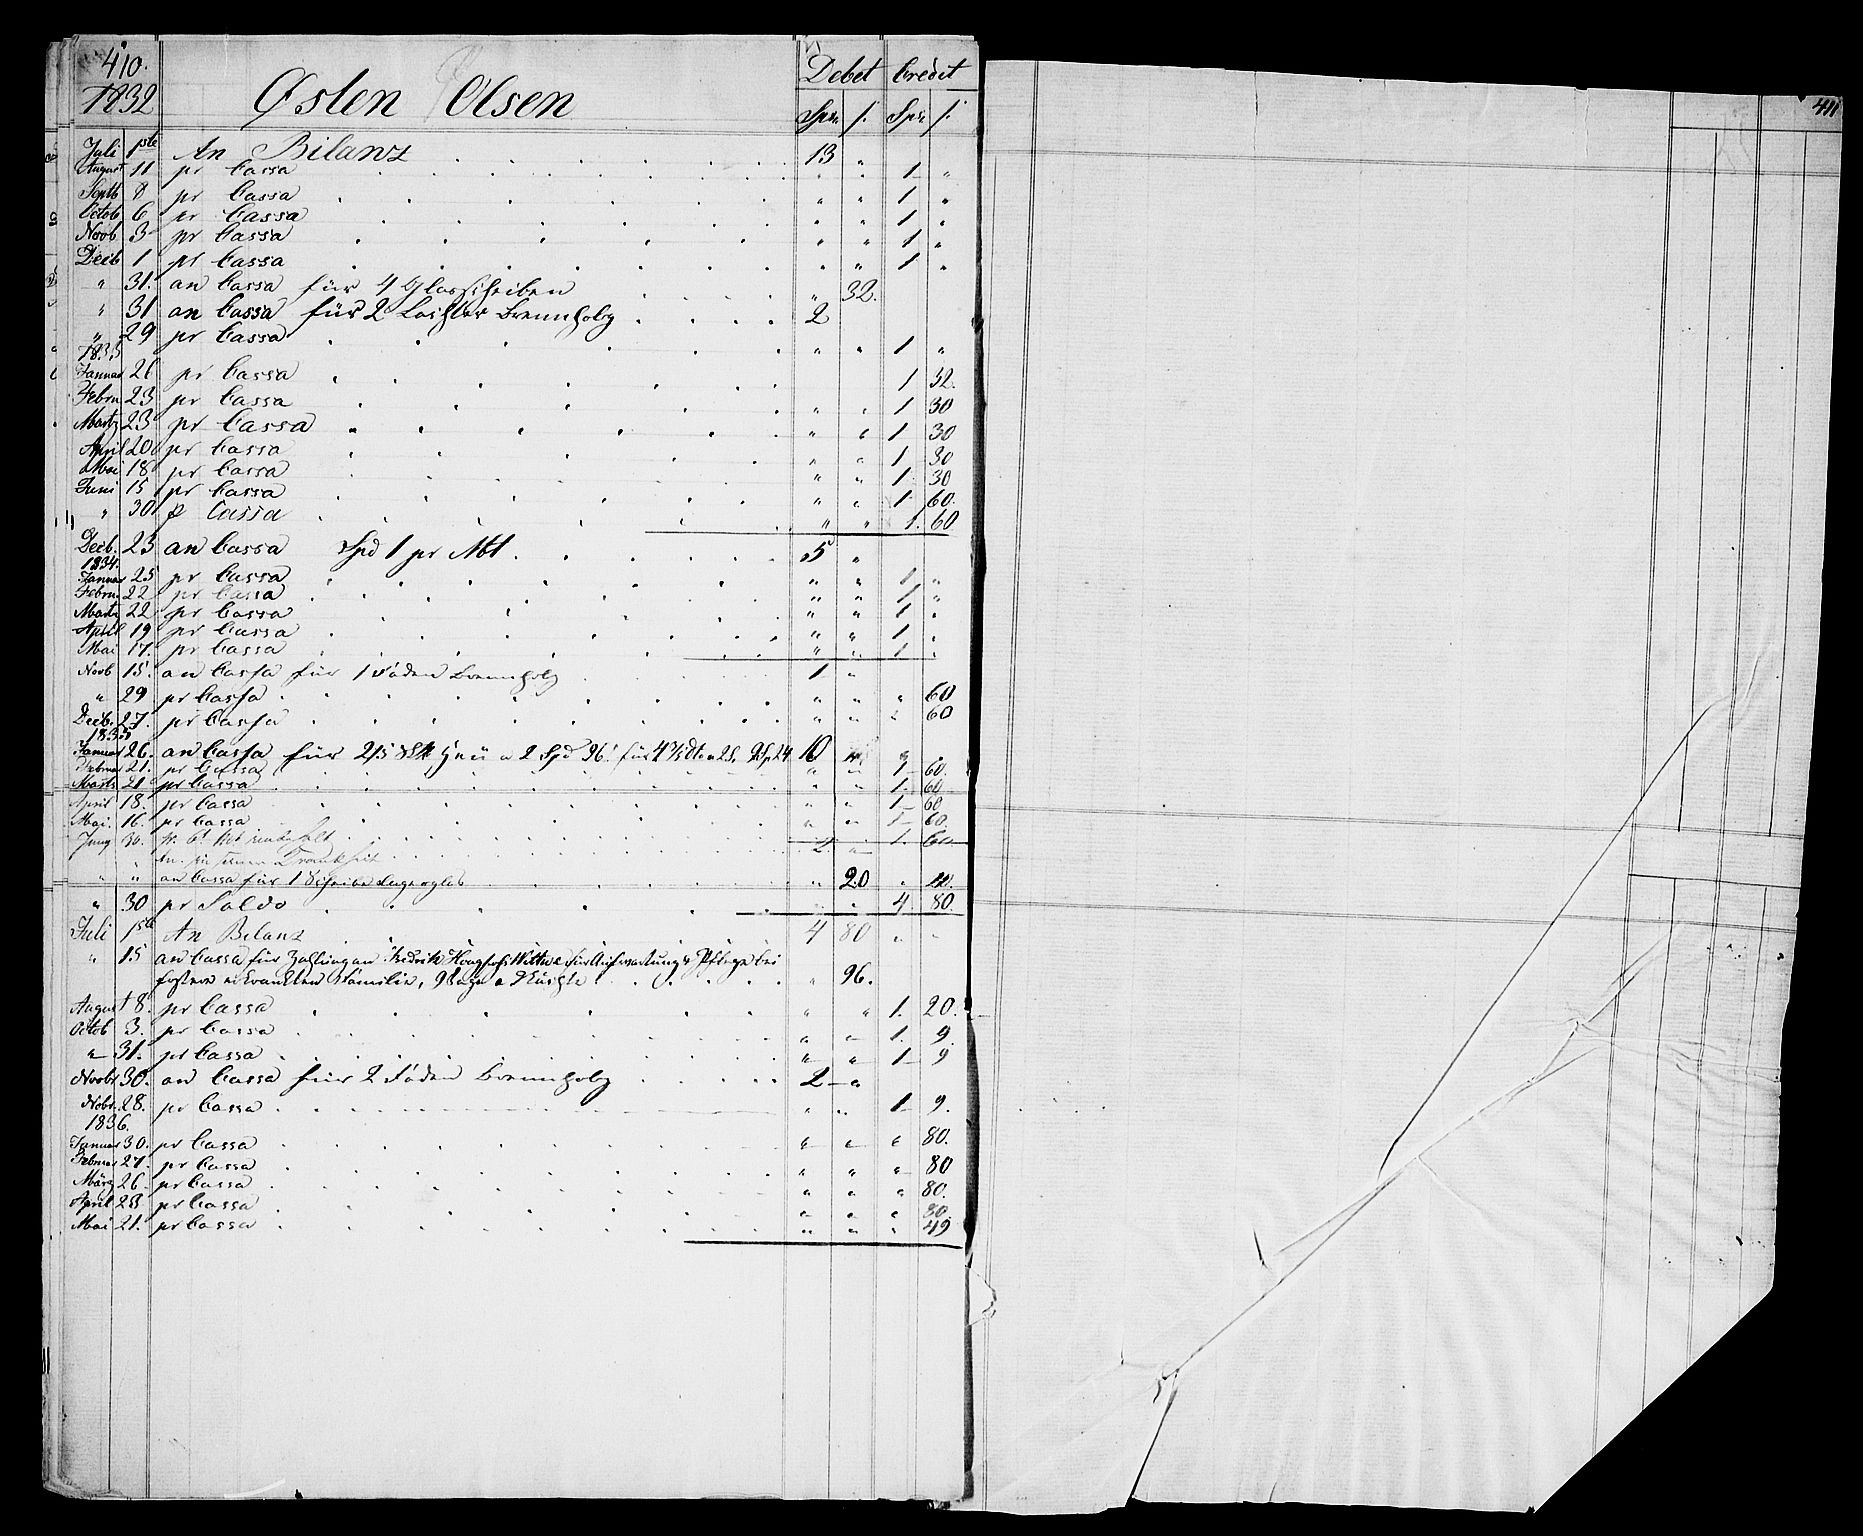 410.
1832 Østen Olsen Debet Credit
Spe. /: Spe. /:
Juli 1ste An Bilanz 13 "
August 11 pr Cassa " " 1 "
Septb 8 pr Cassa " " 1 "
Octob 6 pr Cassa " " 1 "
Novb 3 pr Cassa " " 1 "
Decb 1 pr Cassa " " 1 "
" 31. an Cassa für 4 Glasscheiben " 32.
" 31 an Cassa für 2 Brennholz 2
" 29 pr Cassa " " 1 "
1833
Januar 26 pr Cassa 1 32.
Febru 23 pr Cassa " " 1 30
Martz 23 pr Cassa " " 1 30
April 20 pr Cassa " " 1 30
Mai 18 pr Cassa " " 1 30
Juni 15 pr Cassa " " 1 60.
" 30 p Cassa " " 1. 60
Decb. 23 an Cassa Spd 1 pr Mt. 5 "
1834.
Januar 25 pr Cassa " " 1 "
Febru. 22 pr Cassa " " 1 "
Martz 22 pr Cassa " " 1 "
April 19 pr Cassa " " 1 "
Mai 17. pr Cassa " " 1 "
Novb 15. an Cassa für 1 Faden Brennholz 1 "
" 29 pr Cassa " " " 60
Decb. 27. pr Cassa " " " 60
1835
Januar 26. an Cassa für 2 Spd 96. für 10 " "
Februar 21. pr Cassa " " 1 60.
Martz 21 pr Cassa " " 1. 60
April 18. pr Cassa " " 1 60
Mai. 16. pr Cassa " " 1 60.
Juny 30. 2. 1. 60
an Cassa für 1 Scheibe " 20 "
" 30 pr Saldo " " 4 80.
Juli 1ste An Bilanz 4 80 " "
" 15 an Cassa für Zahlung an Wittwe für Aufwartung & Pflege bei
erkrankten Familie, 9 Tage " 96.
August 8. pr Cassa " " 1. 20.
Octob 3. pr Cassa " " 1. 9.
" 31. pr Cassa " " 1 9
Novbr 30. an Cassa für 2 Faden Brennholz 2 "
Nobr. 28. pr Cassa " " 1 9.
1836.
Januar 30. pr Cassa " " " 80.
Februar 27. pr Cassa " " " 80
März 26 pr Cassa " " " 80.
April 23 pr Cassa " " " 80.
Mai 21. pr Cassa " " " 49
411